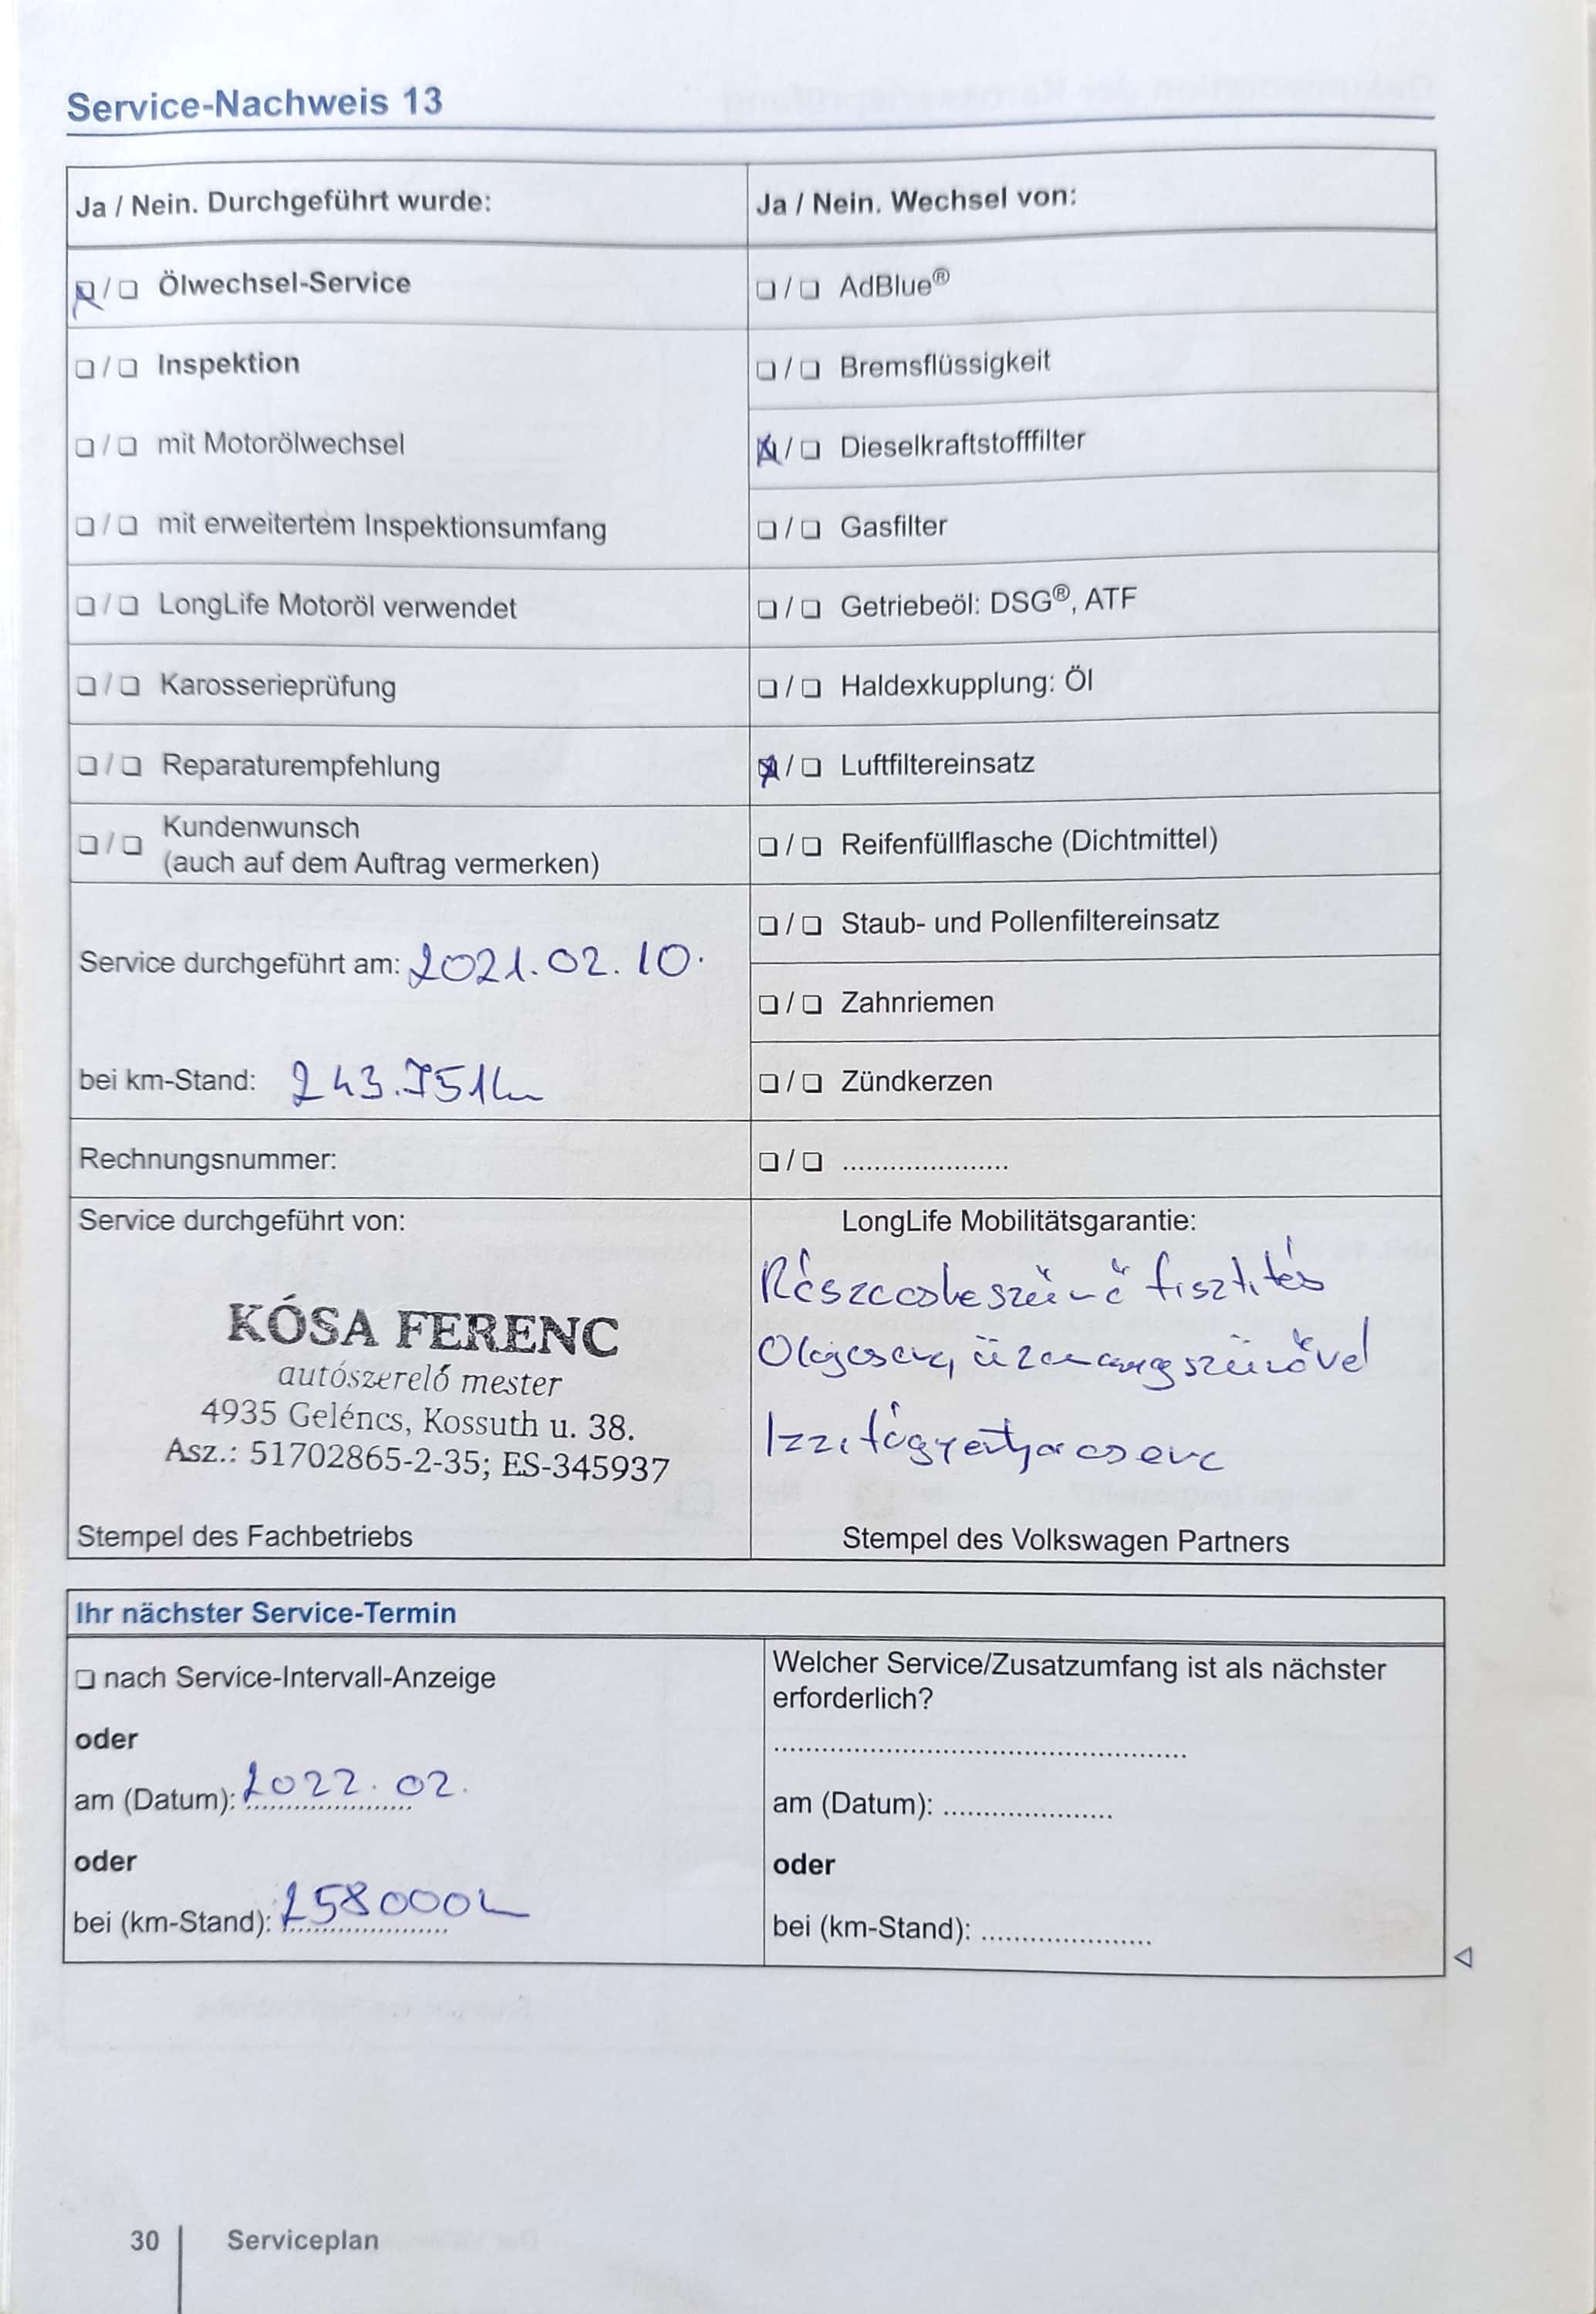 Service-Nachweis 13
Ja / Nein. Durchgeführt wurde:
❏ / ❏ Ölwechsel-Service
❏ / ❏ Inspektion
❏ / ❏ mit Motorölwechsel
❏ / ❏ mit erweitertem Inspektionsumfang
❏ / ❏ LongLife Motoröl verwendet
❏ / ❏ Karosserieprüfung
❏ / ❏ Reparaturempfehlung
❏ / ❏ Kundenwunsch
(auch auf dem Auftrag vermerken)
Service durchgeführt am: 2021.02.10.
bei km-Stand: 243.751km
Rechnungsnummer:
Service durchgeführt von:
KÓSA FERENC
autószerelő mester
4935 Gelénes, Kossuth u. 38.
Asz.: 51702865-2-35; ES-345937
Stempel des Fachbetriebs
Ja / Nein. Wechsel von:
❏ / ❏ AdBlue®
❏ / ❏ Bremsflüssigkeit
❏ / ❏ Dieselkraftstofffilter
❏ / ❏ Gasfilter
❏ / ❏ Getriebeöl: DSG®, ATF
❏ / ❏ Haldexkupplung: Öl
❏ / ❏ Luftfiltereinsatz
❏ / ❏ Reifenfüllflasche (Dichtmittel)
❏ / ❏ Staub- und Pollenfiltereinsatz
❏ / ❏ Zahnriemen
❏ / ❏ Zündkerzen
❏ / ❏ .....................
LongLife Mobilitätsgarantie:
Részecskeszűrő tisztítás
Olajcsere, üzemanyagszűrővel
Izzítógyertya csere
Stempel des Volkswagen Partners
Ihr nächster Service-Termin
❏ nach Service-Intervall-Anzeige
oder
am (Datum): 2022.02.
oder
bei (km-Stand): 258000km
Welcher Service/Zusatzumfang ist als nächster
erforderlich?
....................................................
am (Datum): .....................
oder
bei (km-Stand): .....................
30 Serviceplan